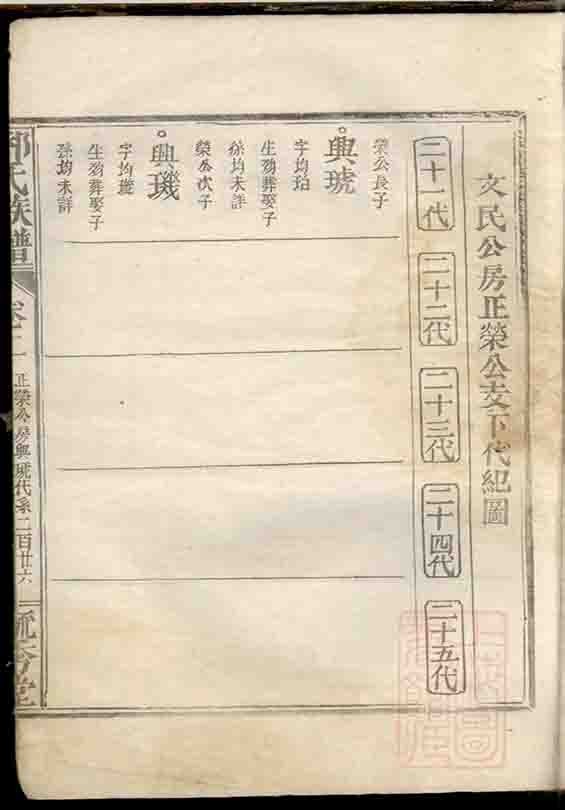 文民公房正榮公支下代紀圖
二十一代
二十二代
二十三代
二十四代
二十五代
榮公長子
興琥
字均珀
生殁葬娶子
孫均未詳
榮公次子
興璣
字均璇
生殁葬娶子
孫均未詳
氏族譜
卷
正榮公房興琥代系二百廿六